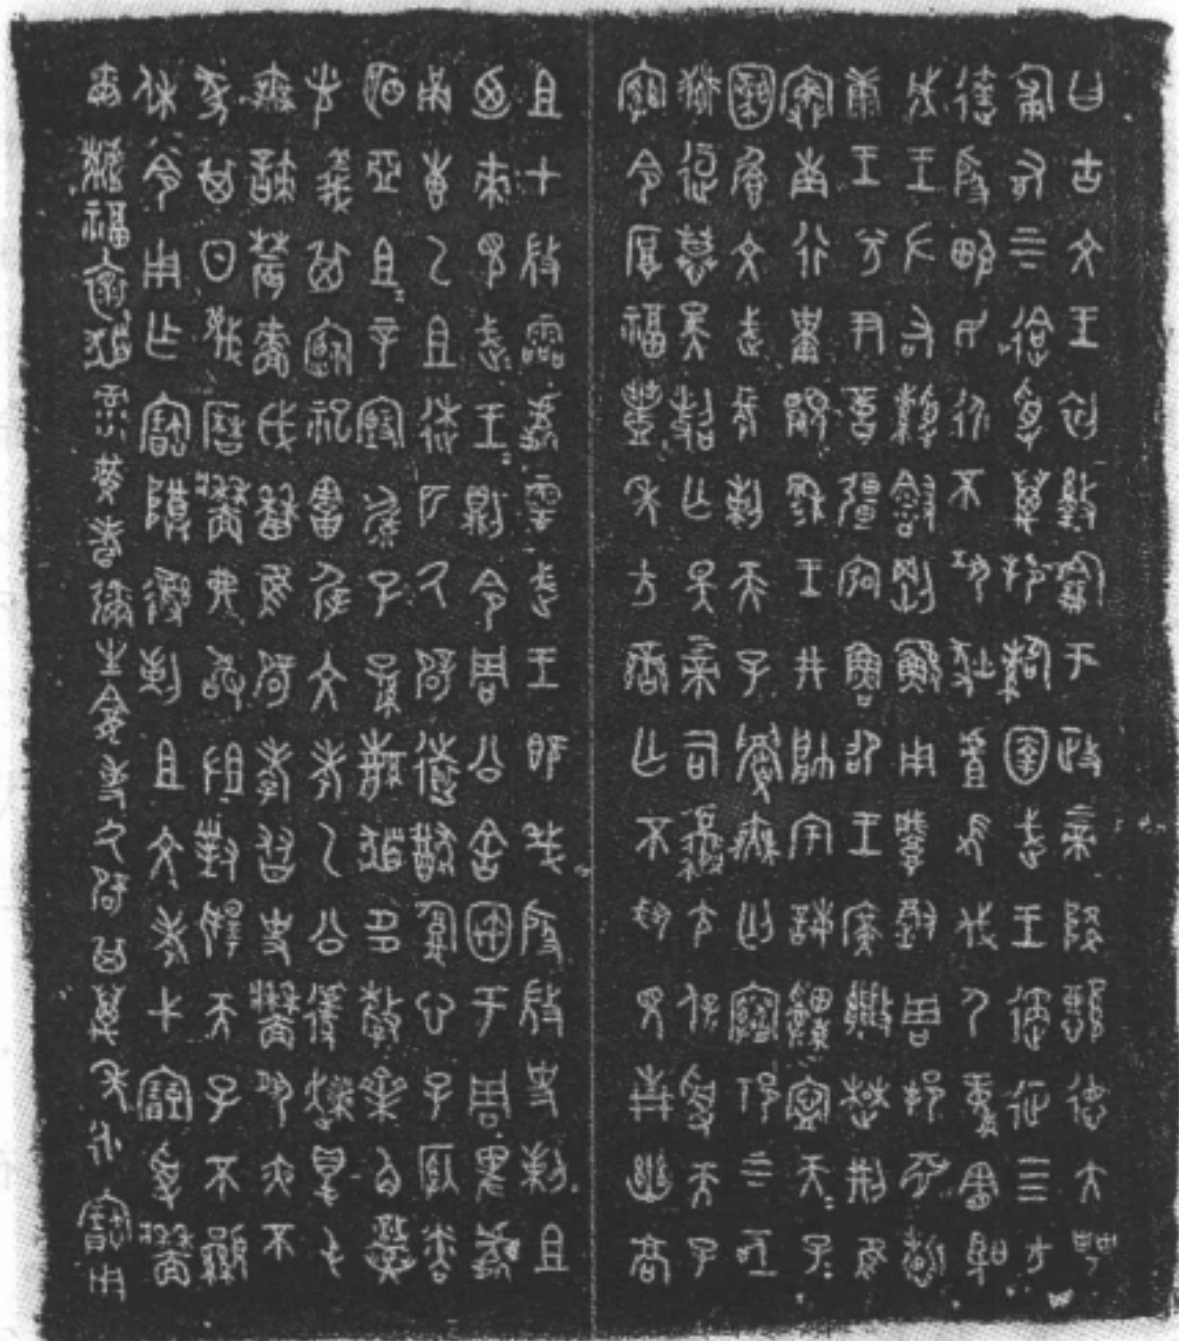 曰古文王初盭龢于政上帝降懿德大甹
匍有上下迨受萬邦圉武王遹征四方
達殷畯民永不巩狄虘髟伐尸童憲聖
成王左右綬會剛鯀用肇徹周邦淵哲
康王兮尹啻彊宖魯卲王廣楚荊隹
南行祗顯穆王井帥宇誨天子天子
文武長剌天子無匄祁上下亟
獄逗慕昊亡斁上帝司夒保受天子
綰令厚福豐年方蠻亡不見青幽高
且才微霝處雩武王既殷微史剌且
廼來見武王武王則令周公舍于周卑處
甬叀乙且匹氒辟遠猷腹心子
明亞且且辛毓子孫多孷角
光義其禋祀害屖文考乙公遽得屯
無諫農嗇戉隹辟孝史牆夙夜不
其日蔑曆牆弗敢對揚天子不顯
休令用乍寶尊彝剌且文考弋受牆
爾福懷祿黃耇彌生龕事氒辟其萬年永寶用